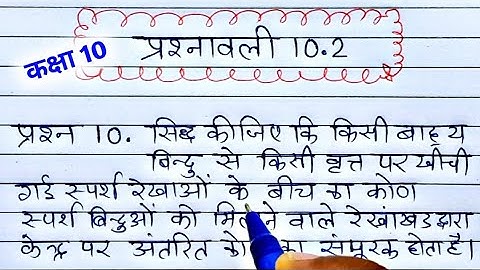 कक्षा 10
प्रश्नावली 10.2
प्रश्न 10. सिद्ध कीजिए कि किसी बाह्य
बिन्दु से किसी वृत्त पर खींची
गई स्पर्श रेखाओं के बीच का कोण
स्पर्श बिन्दुओं को मिलाने वाले रेखाखंड द्वारा
केन्द्र पर अंतरित का संपूरक होता है।